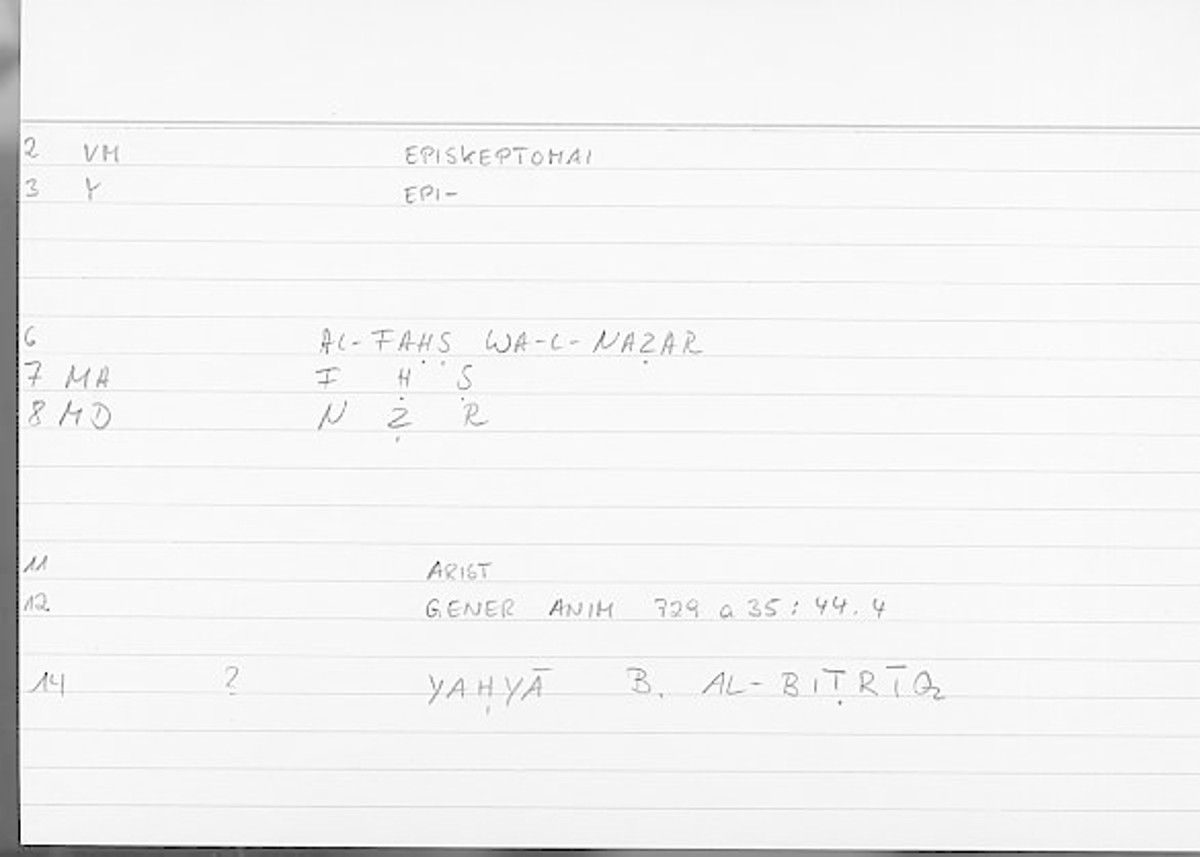 2 VM EPISKEPTOMAI
3 Y EPI-
6 AL-FAḤṢ WA-L-NAẒAR
7 MA F Ḥ Ṣ
8 MD N Ẓ R
11 ARIST
12 GENER ANIM 729 a 35 : 44.4
14 ? YAḤYĀ B. AL-BIṬRĪQ